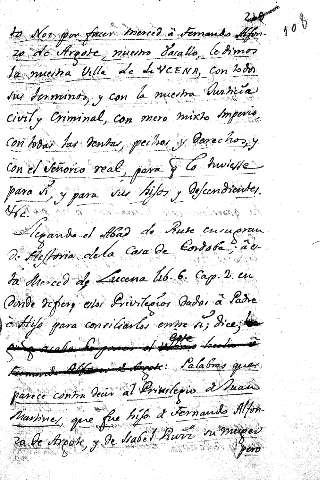 108
to Nos por facer merced à Fernando Alfon-
zo de Argote, nuestro Vasallo, le dimos
la nuestra Villa de LUCENA, con todos
sus terminos, y con la nuestra Justicia
civil y Criminal, con mero mixto Imperio,
con todas las rentas, pechos, y derechos, y
con el Señorio real, para q lo tuviesse
para sí, y para sus hijos y descendientes.
&c.
Llegando el Abad de Rute en su gran-
de Historia de la Casa de Cordoba, à es-
ta Merced de Lucena lib. 6. cap. 2. en
donde refiere estos Privilegios dados à Padre
e Hijo para conciliarlos entre sí; dice;
Palabras que
parece contradecir al Privilegio de Juan
Martinez, que fue hijo de Fernando Alfon-
zo de Argote, y de Isabel Ruiz su muger
pero